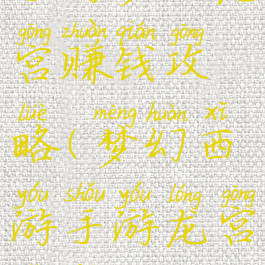 gōng zhuàn qián gōng
宫赚钱攻
lüè mèng huàn xī
略(梦幻西
yóu shǒu yóu lóng gōng
游手游龙宫